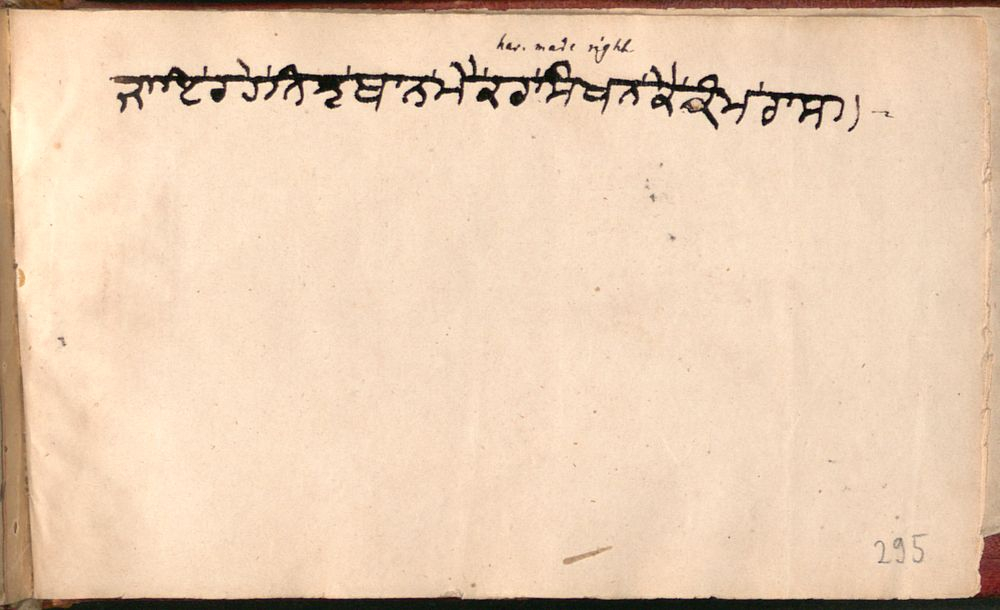 has. made right
ਜਾਇ ਰਹੇ ਥਾਨ ਮੈ ਕਰ ਸਿਖਨ ਕੈ ਰਾਸਾ)
295